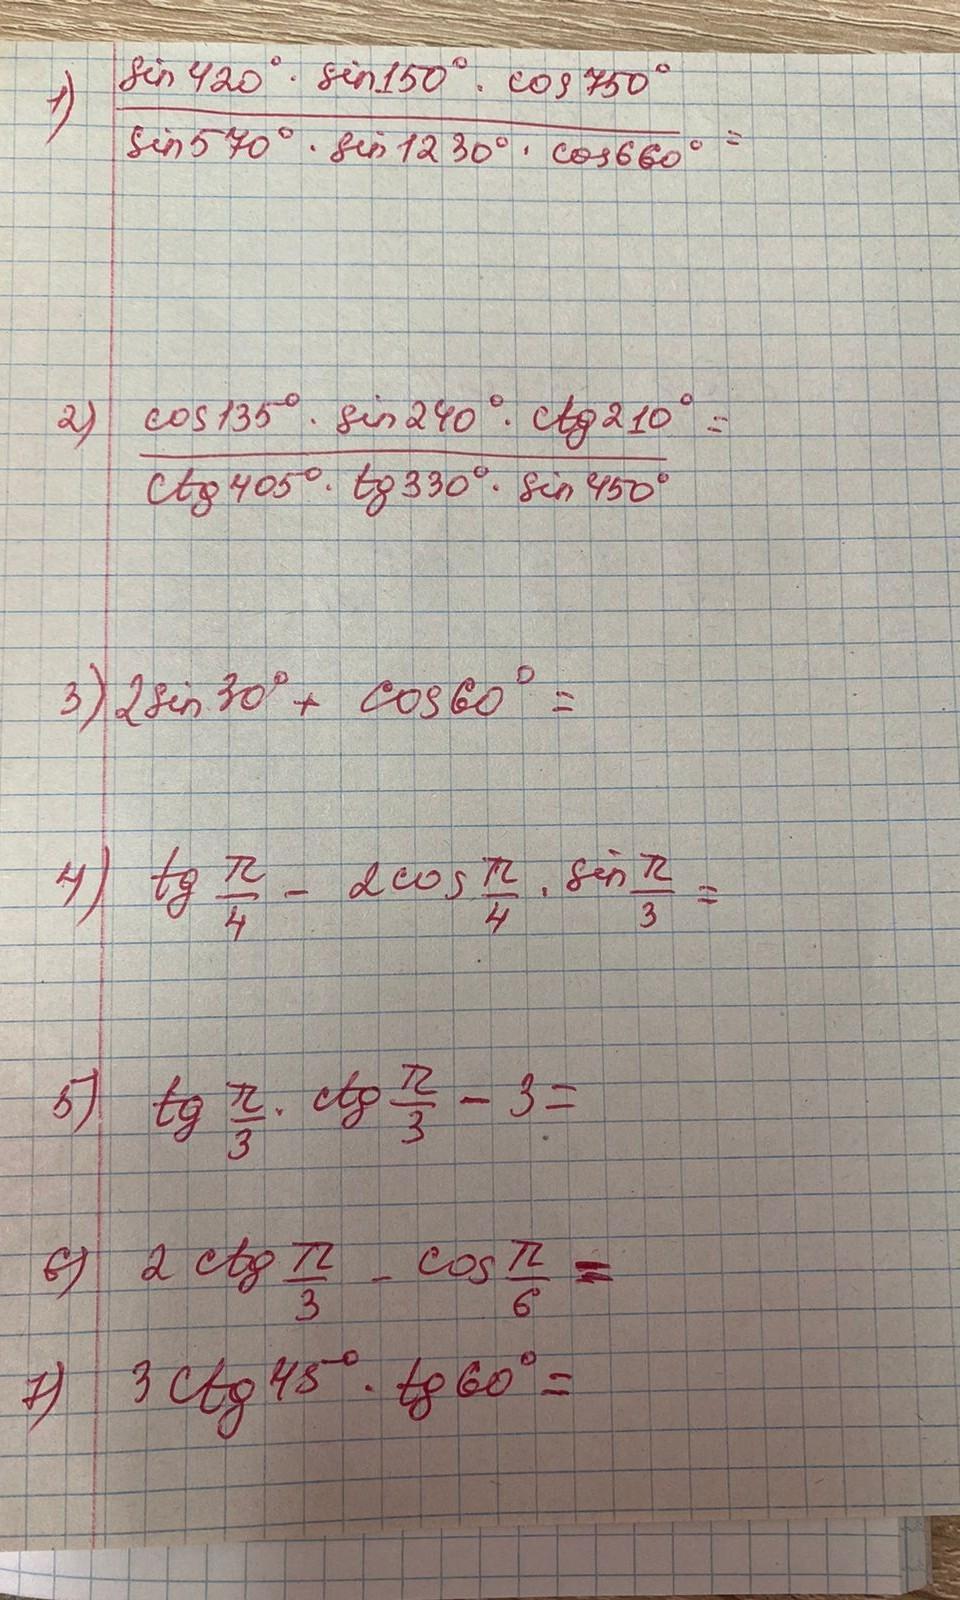 1) sin420° · sin150° · cos750°
sin570° · sin1230° · cos660° =
2) cos135° · sin240° · ctg210° =
ctg405° · tg330° · sin450°
3) 2sin30° + cos60° =
4) tg π/4 - 2cos π/4 · sin π/3 =
5) tg π/3 · ctg π/3 - 3 =
6) 2 ctg π/3 - cos π/6 =
7) 3 ctg45° · tg60° =